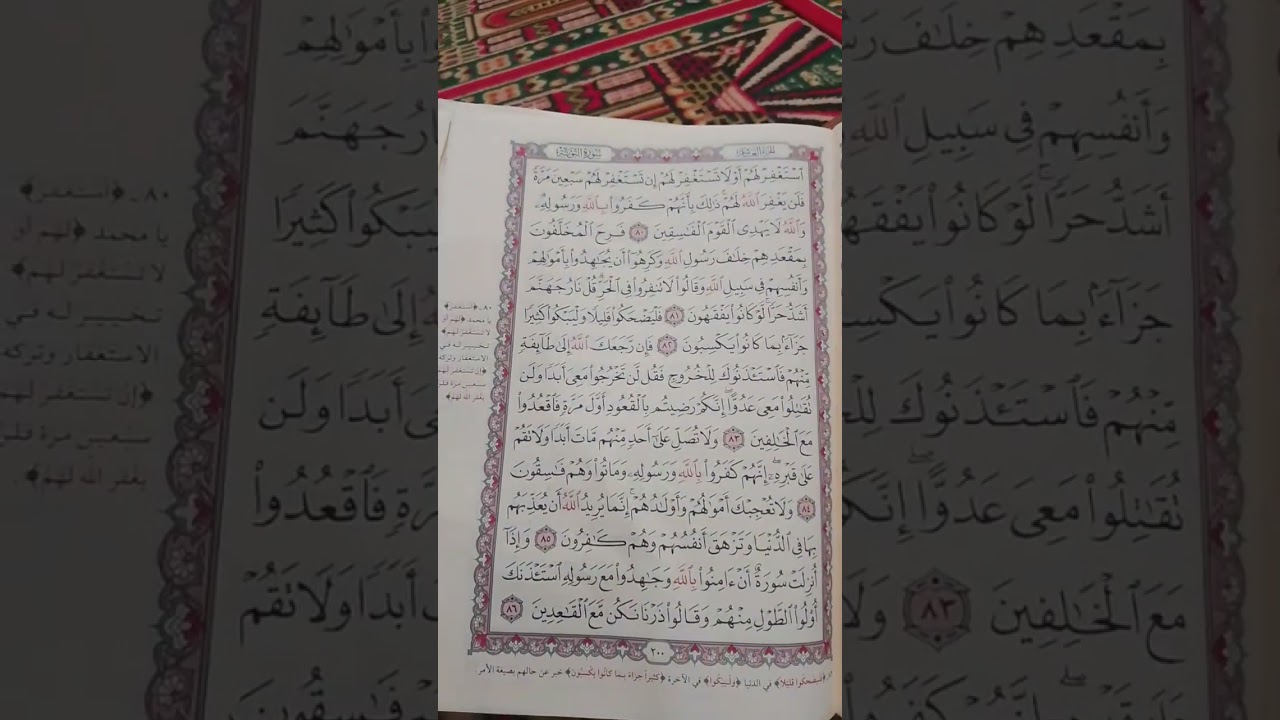 سورة التوبة
الجزء العاشر
ٱسۡتَغۡفِرۡ لَهُمۡ أَوۡ لَا تَسۡتَغۡفِرۡ لَهُمۡ إِن تَسۡتَغۡفِرۡ لَهُمۡ سَبۡعِينَ مَرَّةٗ
فَلَن يَغۡفِرَ ٱللَّهُ لَهُمۡۚ ذَٰلِكَ بِأَنَّهُمۡ كَفَرُواْ بِٱللَّهِ وَرَسُولِهِۦۗ
وَٱللَّهُ لَا يَهۡدِي ٱلۡقَوۡمَ ٱلۡفَٰسِقِينَ ٨٠ فَرِحَ ٱلۡمُخَلَّفُونَ
بِمَقۡعَدِهِمۡ خِلَٰفَ رَسُولِ ٱللَّهِ وَكَرِهُوٓاْ أَن يُجَٰهِدُواْ بِأَمۡوَٰلِهِمۡ
وَأَنفُسِهِمۡ فِي سَبِيلِ ٱللَّهِ وَقَالُواْ لَا تَنفِرُواْ فِي ٱلۡحَرِّۗ قُلۡ نَارُ جَهَنَّمَ
أَشَدُّ حَرّٗاۚ لَّوۡ كَانُواْ يَفۡقَهُونَ ٨١ فَلۡيَضۡحَكُواْ قَلِيلٗا وَلۡيَبۡكُواْ كَثِيرٗا
جَزَآءَۢ بِمَا كَانُواْ يَكۡسِبُونَ ٨٢ فَإِن رَّجَعَكَ ٱللَّهُ إِلَىٰ طَآئِفَةٖ
مِّنۡهُمۡ فَٱسۡتَـٔۡذَنُوكَ لِلۡخُرُوجِ فَقُل لَّن تَخۡرُجُواْ مَعِيَ أَبَدٗا وَلَن
تُقَٰتِلُواْ مَعِيَ عَدُوًّاۖ إِنَّكُمۡ رَضِيتُم بِٱلۡقُعُودِ أَوَّلَ مَرَّةٖ فَٱقۡعُدُواْ
مَعَ ٱلۡخَٰلِفِينَ ٨٣ وَلَا تُصَلِّ عَلَىٰٓ أَحَدٖ مِّنۡهُم مَّاتَ أَبَدٗا وَلَا تَقُمۡ
عَلَىٰ قَبۡرِهِۦٓۖ إِنَّهُمۡ كَفَرُواْ بِٱللَّهِ وَرَسُولِهِۦ وَمَاتُواْ وَهُمۡ فَٰسِقُونَ
٨٤ وَلَا تُعۡجِبۡكَ أَمۡوَٰلُهُمۡ وَأَوۡلَٰدُهُمۡۚ إِنَّمَا يُرِيدُ ٱللَّهُ أَن يُعَذِّبَهُم
بِهَا فِي ٱلدُّنۡيَا وَتَزۡهَقَ أَنفُسُهُمۡ وَهُمۡ كَٰفِرُونَ ٨٥ وَإِذَآ
أُنزِلَتۡ سُورَةٌ أَنۡ ءَامِنُواْ بِٱللَّهِ وَجَٰهِدُواْ مَعَ رَسُولِهِ ٱسۡتَـٔۡذَنَكَ
أُوْلُواْ ٱلطَّوۡلِ مِنۡهُمۡ وَقَالُواْ ذَرۡنَا نَكُن مَّعَ ٱلۡقَٰعِدِينَ ٨٦
٢٠٠
٨٠ـ ﴿استغفر﴾
يا محمد ﴿لهم أو
لا تستغفر لهم﴾
تخيير له في
الاستغفار وتركه
﴿إن تستغفر لهم
سبعين مرة فلن
يغفر الله لهم﴾
﴿فليضحكوا قليلاً﴾ في الدنيا ﴿وليبكوا﴾ في الآخرة ﴿كثيراً جزاء بما كانوا يكسبون﴾ خبر عن حالهم بصيغة الأمر